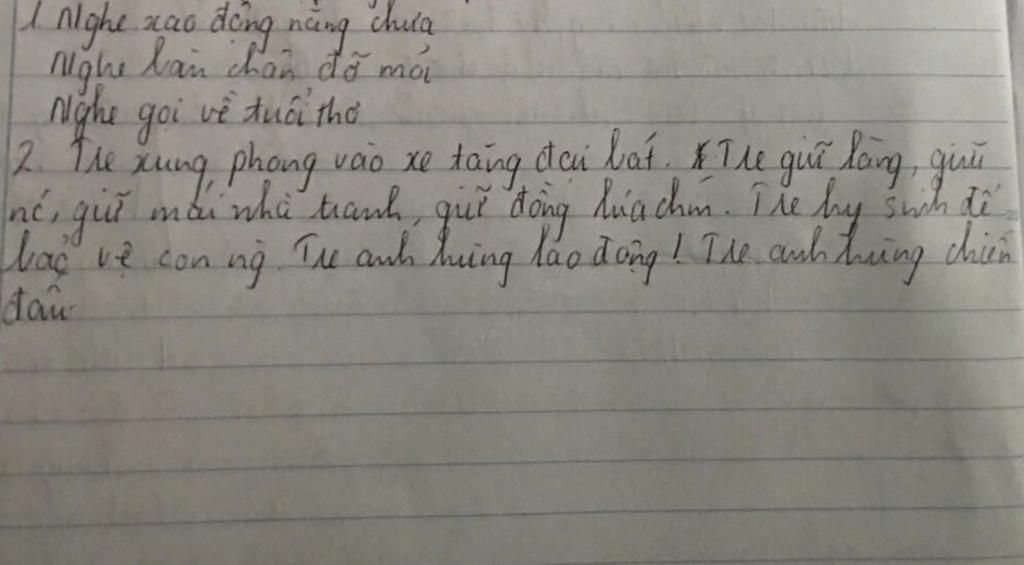 1. Nghe xao động nắng chưa
Nghe bàn chân đỡ mỏi
Nghe gọi về tuổi thơ
2. Tre xung phong vào xe tăng đại bát. Tre giữ làng, giữ
nc, giữ mái nhà tranh, giữ đồng lúa chín. Tre hy sinh để
bảo vệ con ng. Tre anh hùng lao động! Tre anh hùng chiến
đấu